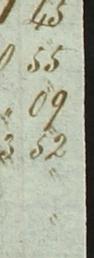 45
0 55
" 09
3 52
"
"